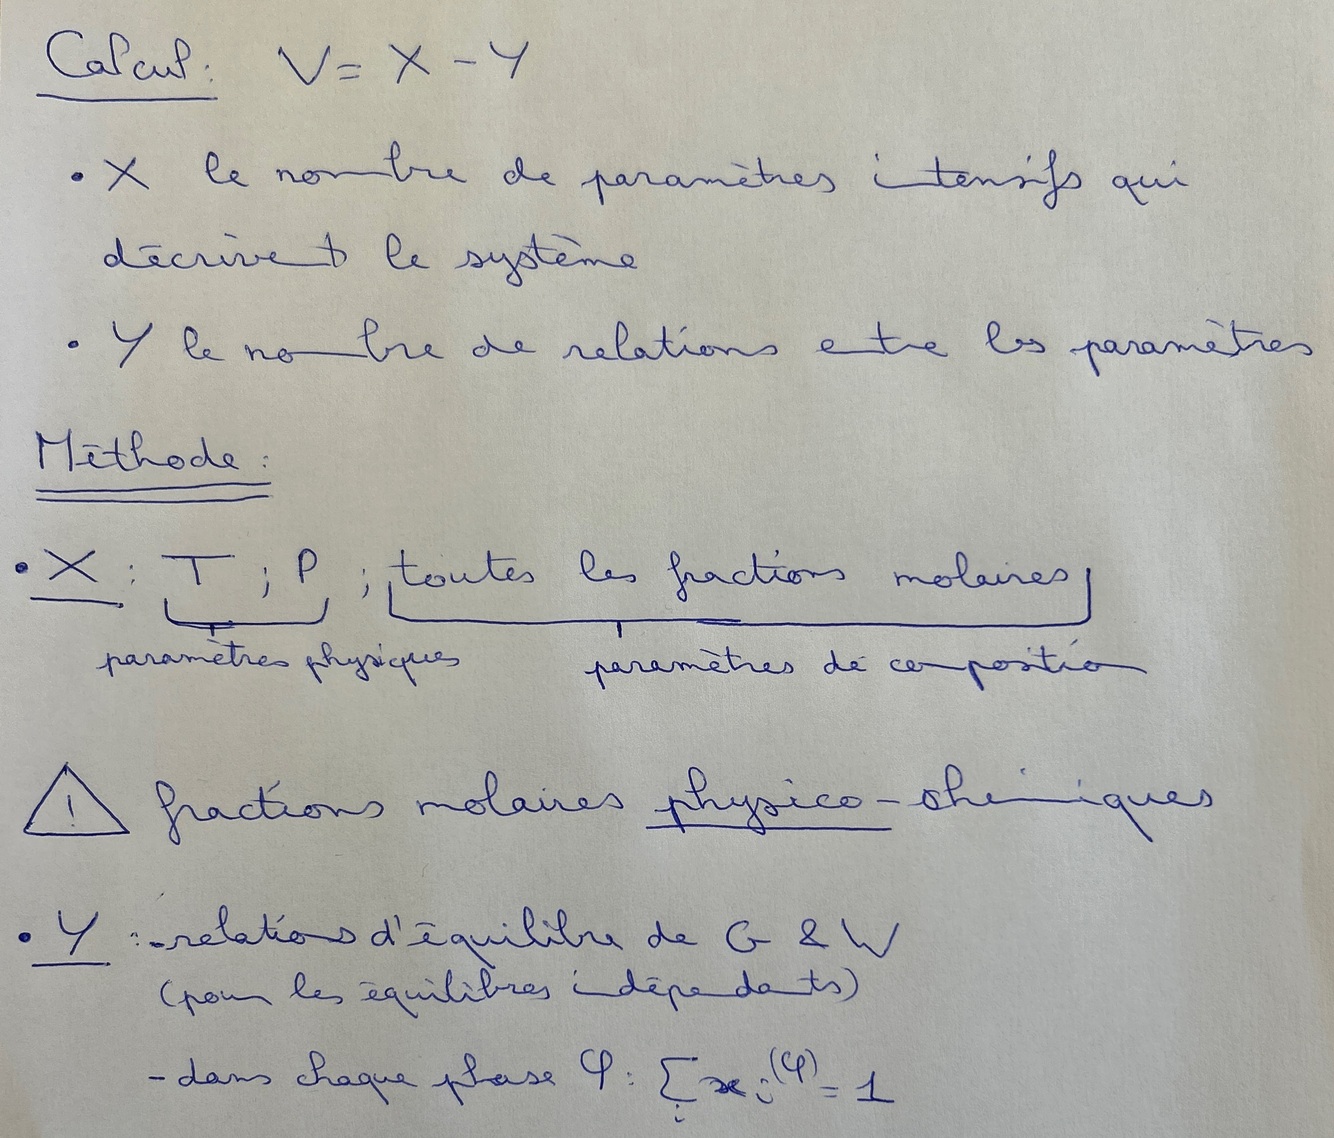 Calcul : V = X - Y
• X le nombre de paramètres intensifs qui
décrivent le système
• Y le nombre de relations entre les paramètres
Méthode :
• X : T ; P ; toutes les fractions molaires
paramètres physiques paramètres de composition
! fractions molaires physico-chimiques
• Y : - relations d'équilibre de G & W
(pour les équilibres indépendants)
- dans chaque phase φ : ∑ᵢ xᵢ^(φ) = 1